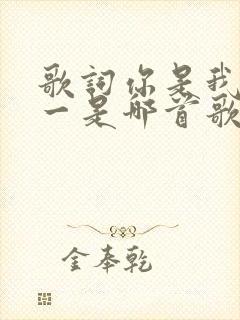 歌詞你是我
一是那首歌
金奉乾